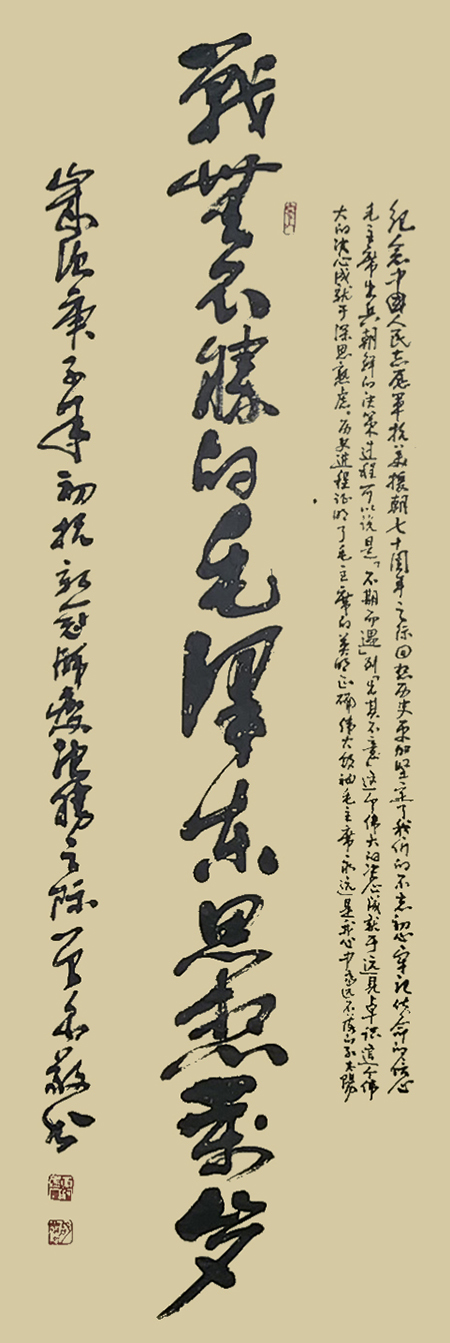 纪念中国人民志愿军抗美援朝七十周年之际回想历史更加坚定了我们的不忘初心牢记使命的信心
毛主席出兵朝鲜的决策过程可以说是「不期而遇」到「出其不意」这个伟大的决心成就于远见卓识这个伟
大的决心成就于深思熟虑。历史进程证明了毛主席的英明正确伟大领袖毛主席永远是我心中永远不落的红太阳
戰無不勝的毛澤东思想萬岁
歲次庚子年初抗新冠肺疫决勝之际 敬书